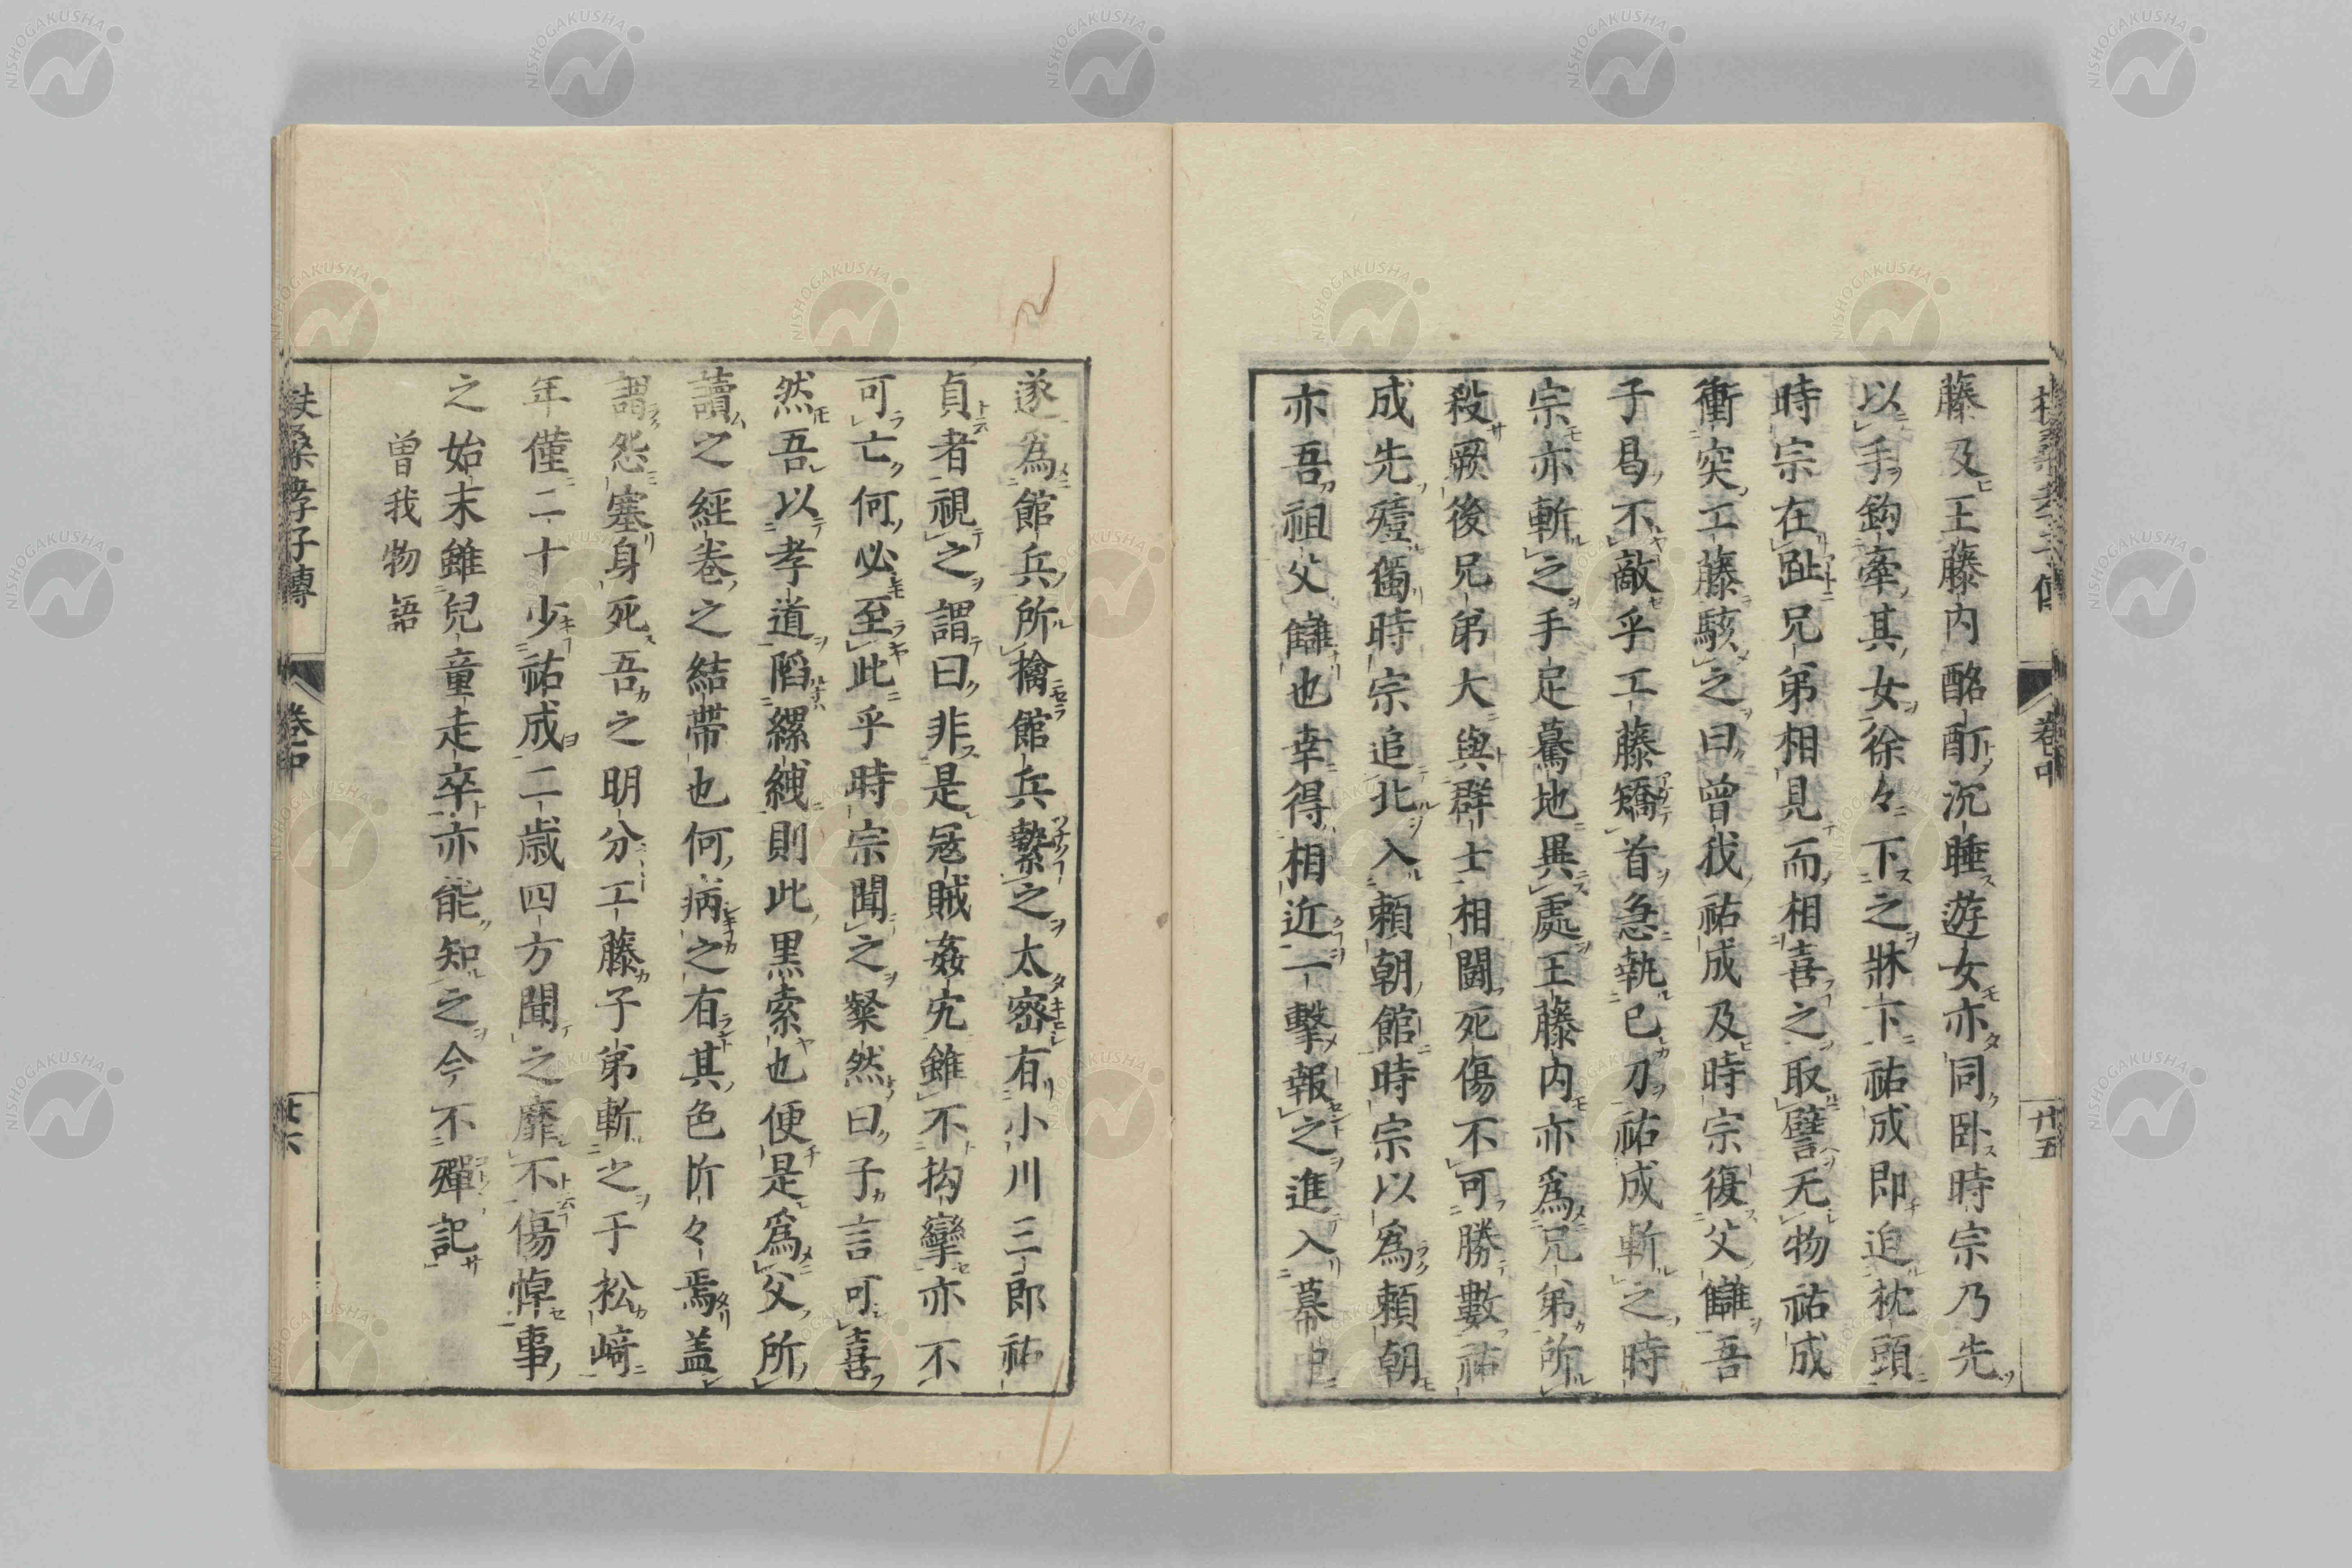 藤及王藤内酩酊沉睡游女亦同卧時宗乃先
以手鈎牽其女徐々下之牀下祐成即迫枕頭
時宗在趾兄弟相見而相喜之取譬无物祐成
衝突工藤駭之曰曾我祐成及時宗復父讎吾
子曷不敵乎工藤矯首急執己刀祐成斬之時
宗亦斬之手足驀地異處王藤内亦為兄弟所
殺厥後兄弟大與群士相鬪死傷不可勝數祐
成先殪獨時宗追北入頼朝館時宗以為頼朝
亦吾祖父讎也幸得相近一擊報之進入幕中
卷中
廿五
遂為館兵所擒館兵縶之太密有小川三郎祐
貞者視之謂曰非是冦賊姦宄雖不拘攣亦不
可亡何必至此乎時宗聞之粲然曰子言可喜
然吾以孝道陷縲絏則此黒索也便是為父所
讀之經卷之結帶也何病之有其色忻々焉盖
謂怨塞身死吾之明分工藤子弟斬之于松﨑
年僅二十少祐成二歳四方聞之靡不傷悼事
之始末雖兒童走卒亦能知之今不殫記
曾我物語
扶桑孝子傳
卷中
廿六